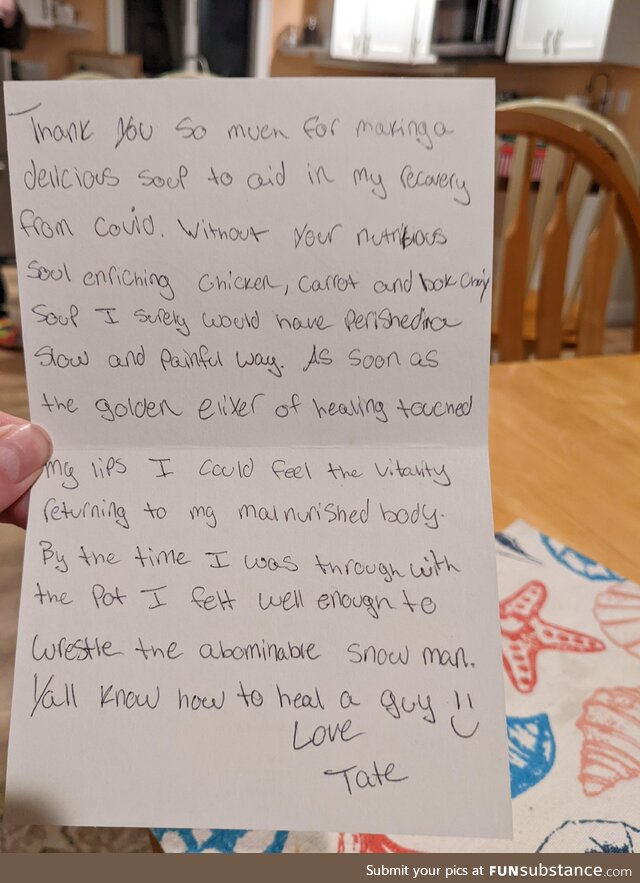 Thank you so much for making a
delicious soup to aid in my recovery
from covid. Without your nutritious
soul enriching chicken, carrot and bok choy
soup I surely would have perished in a
slow and painful way. As soon as
the golden elixer of healing touched
my lips I could feel the vitality
returning to my malnurished body.
By the time I was through with
the pot I felt well enough to
wrestle the abominable snow man.
Y'all know how to heal a guy !!
Love
Tate
Submit your pics at FUNsubstance.com